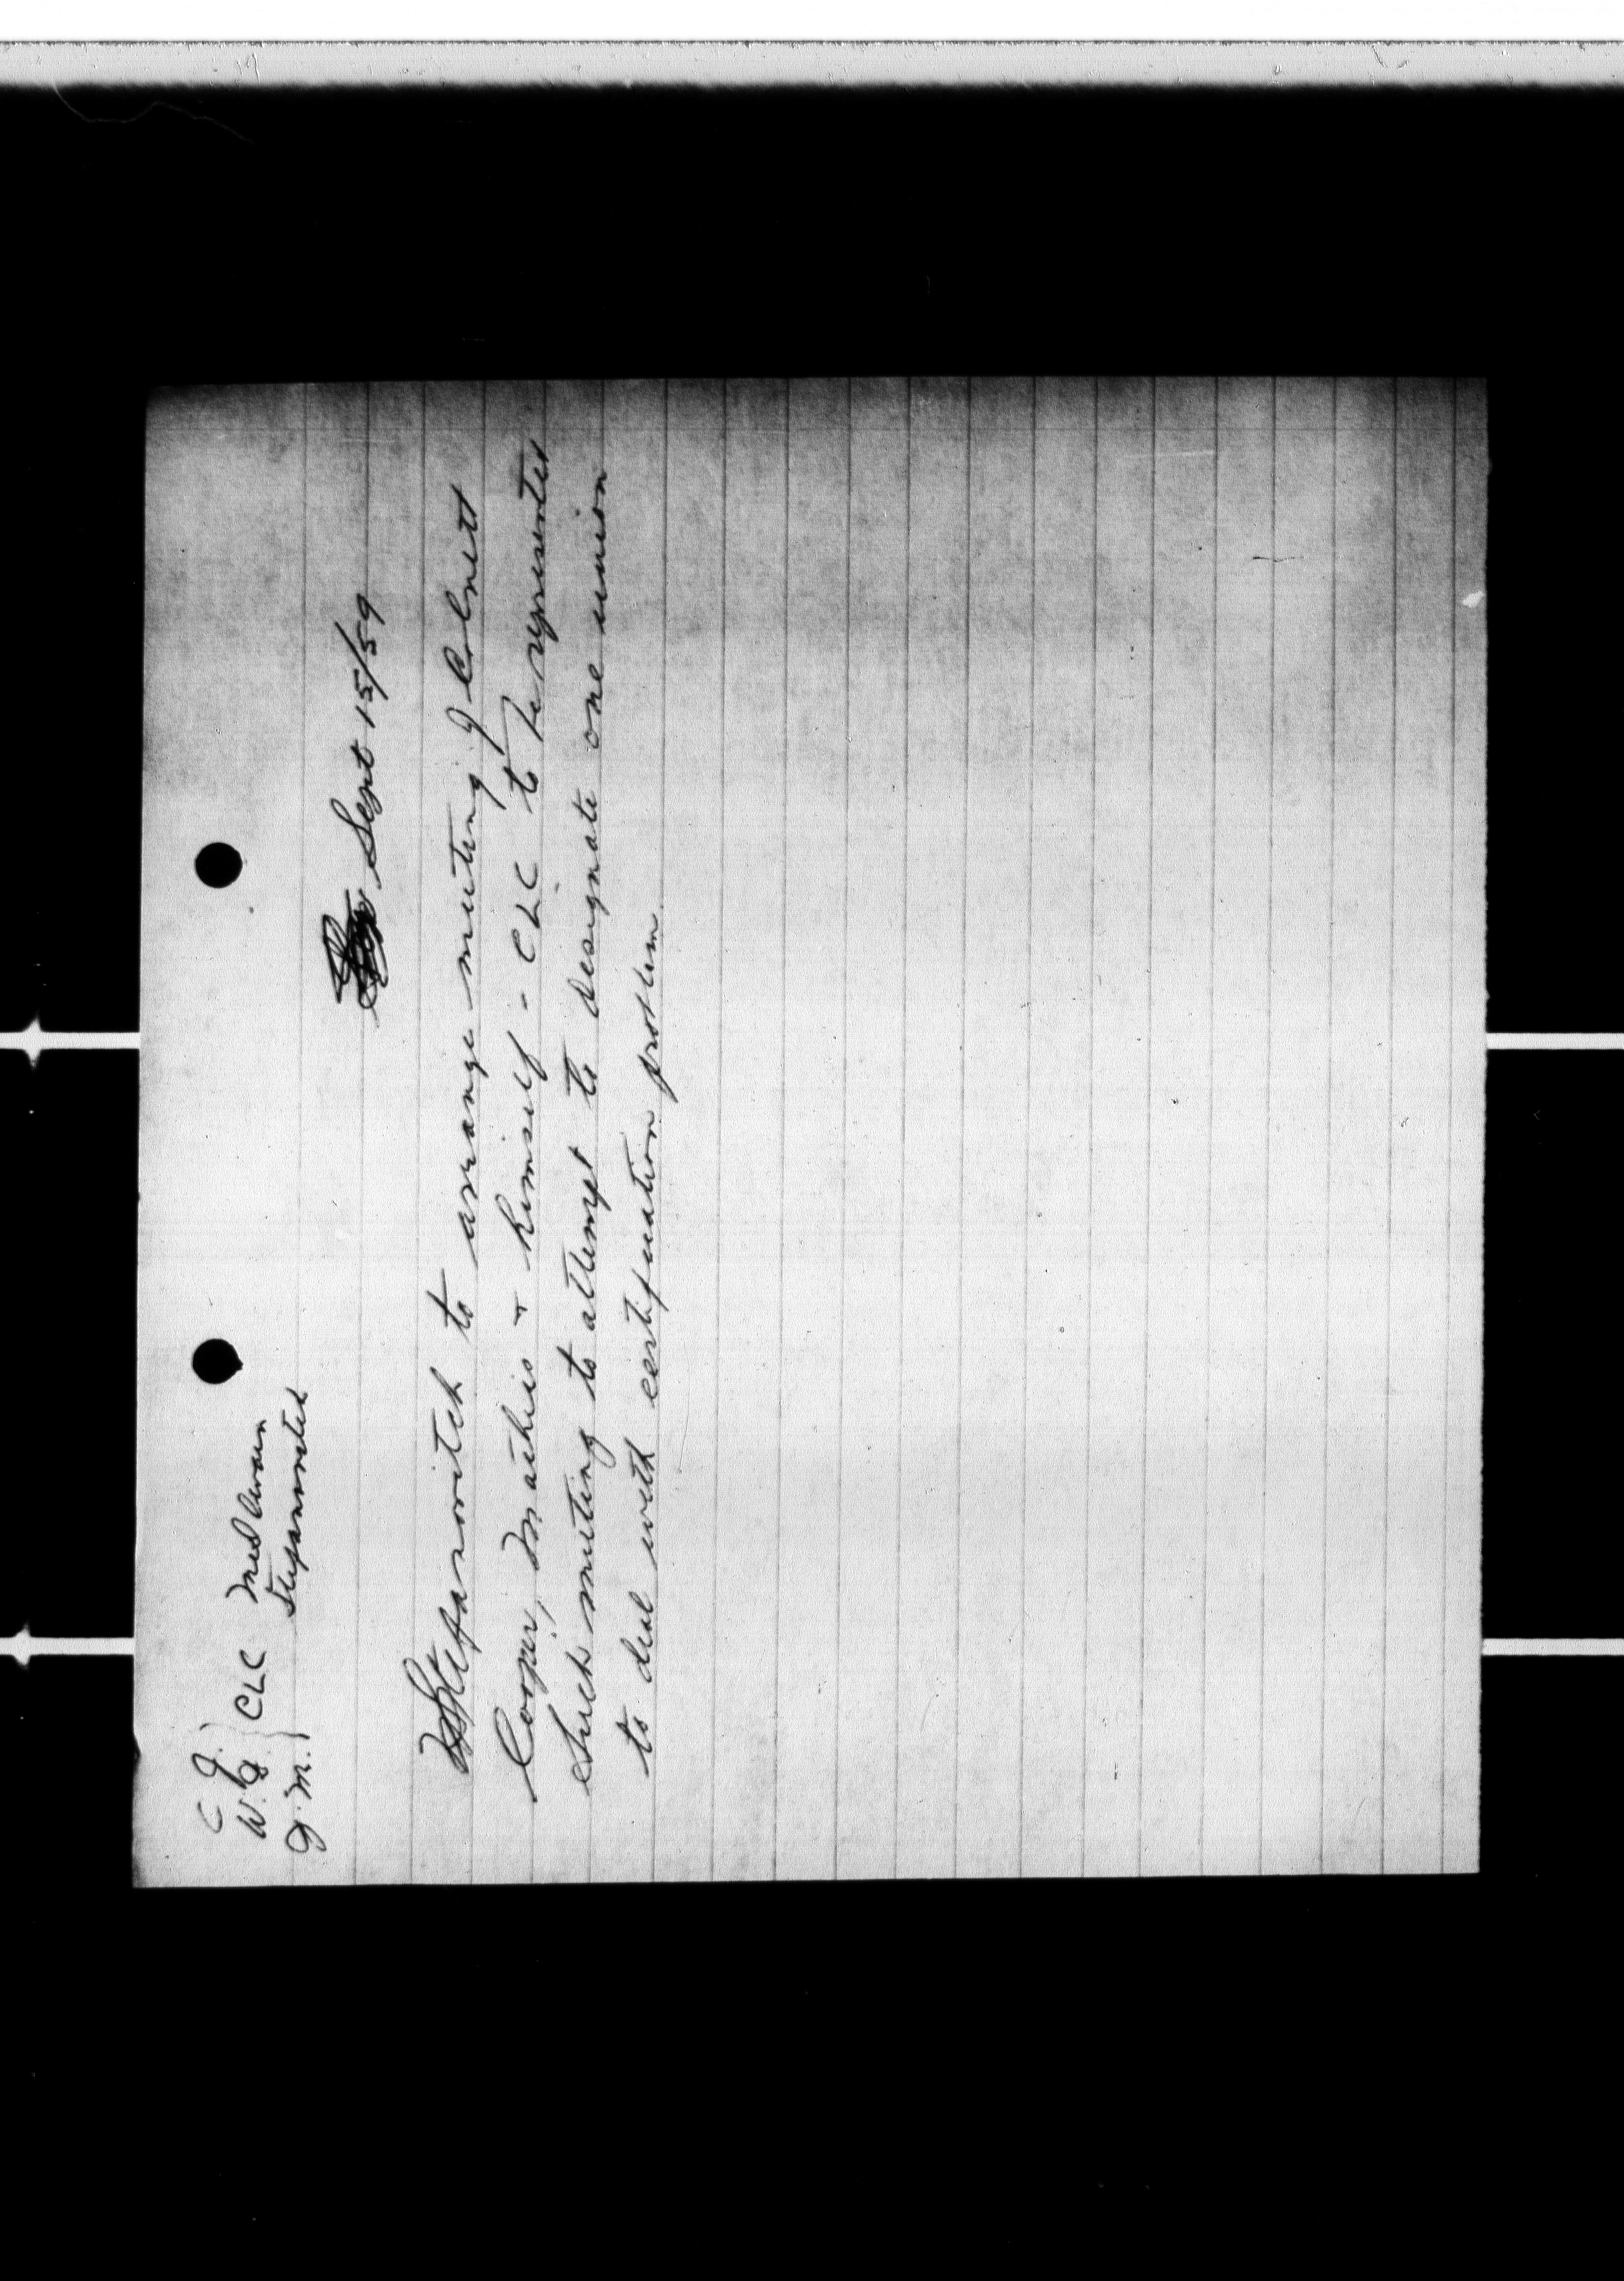 C J.
W. J. } CLC
J. M.
Stepanovitch
Sept 15/59
Stefanovitch to arrange meeting of
Cooper, Mathis + himself - CLC to be represented
such meeting to attempt to designate one union
to deal with certification problem.